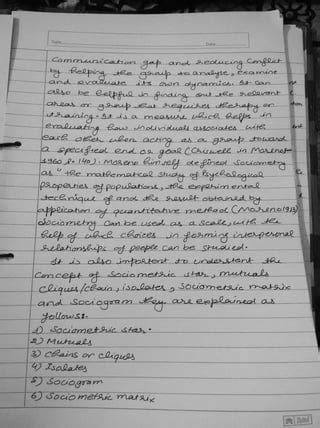 Date
Communication gap and reducing conflict
by helping the group to analyse, examine
and evaluate its own dynamics. It can
also be helpful in finding out the relevant
areas or group that requires therapy or
training. It is a measure which helps in
evaluating how individuals associates with
each other when acting as a group toward
a specified end or goal (Criswell in Moreno
1960, p. 140). Moreno himself defined sociometry
as "the mathematical study of Psychological
properties of populations, the exprtimental
technique of and the result obtained by
application of quantitative method (Moreno
Sociometry can be used as a scale, with the
help of which choices in forming interpersonal
relationships of people can be studied.
It is also important to understant the
concept of sociometric star, mutuals
cliques/chain, isolates, sociometric matrix
and sociogram they are explained as
follows:
1) Sociometric star.
2) Mutuals
3) Chains or cliques
4) Isolates
5) Sociogram
6) Sociometric matrix